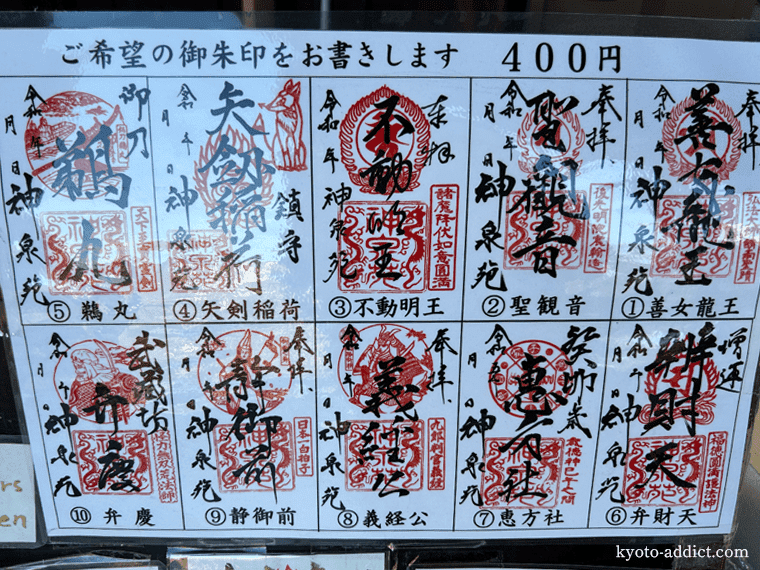 ご希望の御朱印をお書きします　400円
奉拝
善女龍王
令和 年 月 日
神泉苑
①善女龍王
奉拝
聖観音
令和 年 月 日
神泉苑
②聖観音
奉拝
不動明王
諸魔降伏如意圓満
令和 年 月 日
神泉苑
③不動明王
矢劔稲荷
鎮守
令和 年 月 日
神泉苑
④矢剣稲荷
御刀
鵺丸
令和 年 月 日
神泉苑
⑤鵺丸
増運
辨財天
福徳圓満護法神
令和 年 月 日
神泉苑
⑥弁財天
癸卯歳
恵方社
令和五年 月 日
神泉苑
⑦恵方社
奉拝
義経公
九郎判官義経
令和 年 月 日
神泉苑
⑧義経公
奉拝
静御前
日本一白拍子
令和 年 月 日
神泉苑
⑨静御前
武蔵坊
弁慶
令和 年 月 日
神泉苑
⑩弁慶
rs
en
kyoto-addict.com